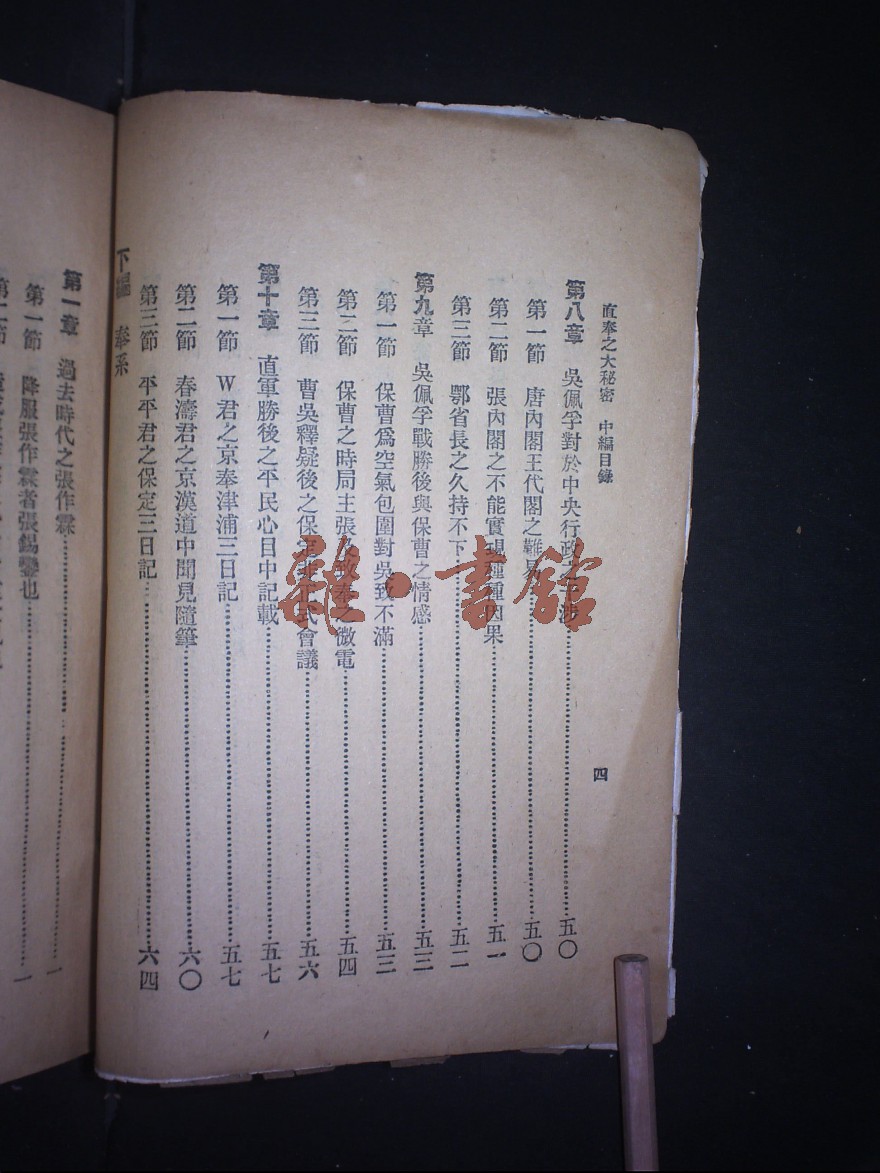 直奉之大秘密 中編目錄
四
第八章 吳佩孚對於中央行政之干涉……五〇
第一節 唐內閣王代閣之難易……五〇
第二節 張內閣之不能實現種種因果……五一
第三節 鄂省長之久持不下……五二
第九章 吳佩孚戰勝後與保曹之情感……五三
第一節 保曹爲空氣包圍對吳致不滿……五三
第二節 保曹之時局主張及致奉之微電……五四
第三節 曹吳釋疑後之保定非正式會議……五六
第十章 直軍勝後之平民心目中記載……五七
第一節 W君之京奉津浦三日記……五七
第二節 春濤君之京漢道中聞見隨筆……六〇
第三節 平平君之保定三日記……六四
下編 奉系
第一章 過去時代之張作霖……一
第一節 降服張作霖者張錫鑾也……一
第二節
雜·書館